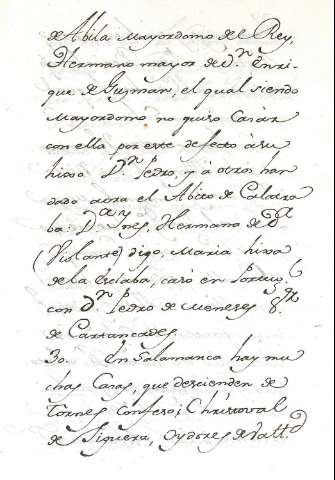 de Abila Mayordomo del Rey,
Hermano mayor de D.ⁿ Enri-
que de Guzman, el qual siendo
Mayordomo, no quiso Casar
con ella por este defecto à su
hixo D.ⁿ Pedro, y à otros han
dado aora el Abito de Calatra
ba: D.ª Ynes, Hermana de D.ª
(Violante) digo, Maria hixa
de la Esclaba, casó en Portug.ˡ
con D.ⁿ Pedro de Meneses S.ᵒʳ
de Cartancades.
30. En Salamanca hay mu
chas Casas, que descienden de
Tornes Confeso; Christoval
de Siguera, Oydores de Vall.ᵈ